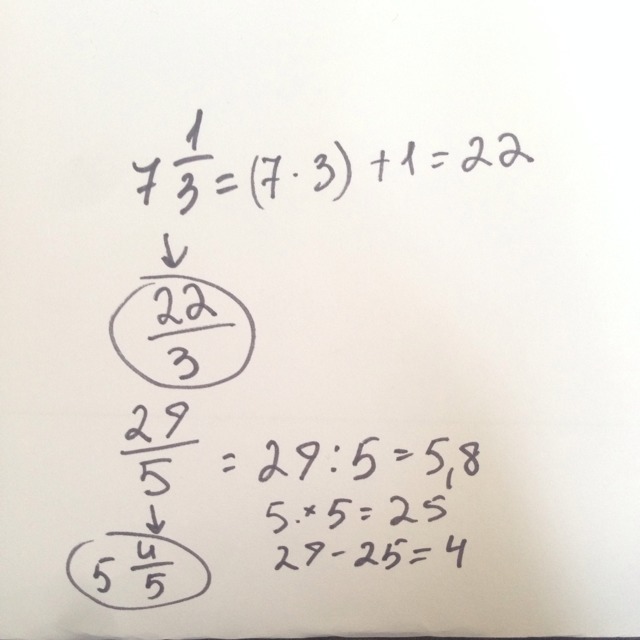 7 1/3 = (7 · 3) + 1 = 22
↓
22/3
29/5 = 29 : 5 = 5,8
5 · × 5 = 25
↓
29 - 25 = 4
5 4/5